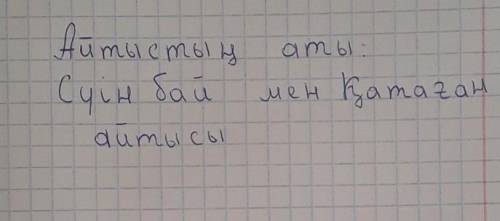 Айтыстың аты:
Сүін бай мен Қатаған
айтысы